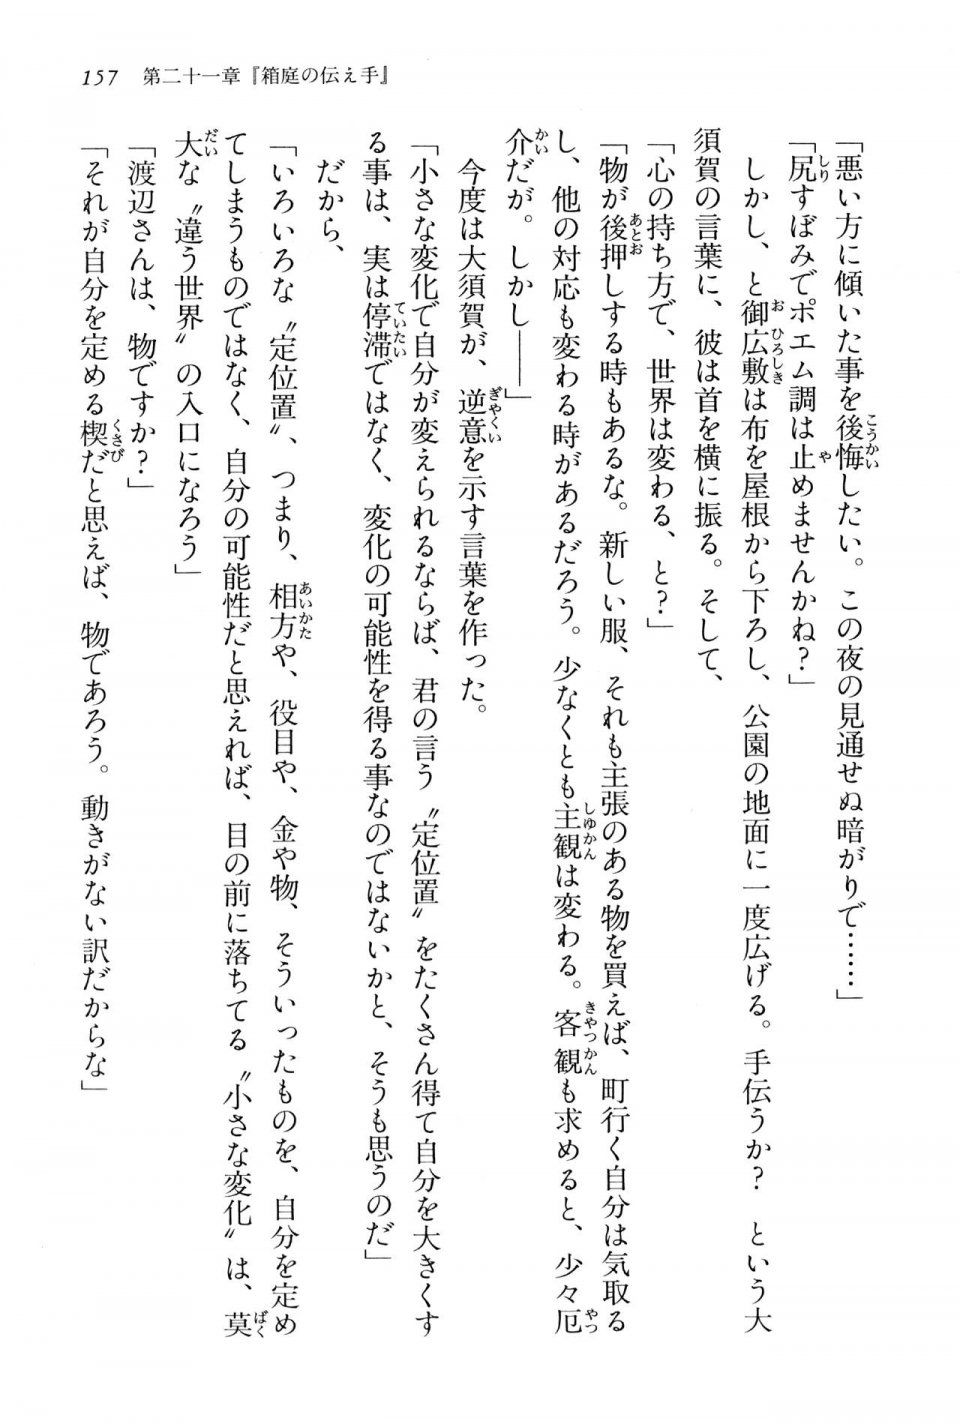 157　第二十一章『箱庭の伝え手』
「悪い方に傾いた事を後悔したい。この夜の見通せぬ暗がりで……」
「尻すぼみでポエム調は止めませんかね？」
　しかし、と御広敷は布を屋根から下ろし、公園の地面に一度広げる。手伝うか？　という大
須賀の言葉に、彼は首を横に振る。そして、
「心の持ち方で、世界は変わる、と？」
「物が後押しする時もあるな。新しい服、それも主張のある物を買えば、町行く自分は気取る
し、他の対応も変わる時があるだろう。少なくとも主観は変わる。客観も求めると、少々厄
介だが。しかし――」
　今度は大須賀が、逆意を示す言葉を作った。
「小さな変化で自分が変えられるならば、君の言う〝定位置〟をたくさん得て自分を大きくす
る事は、実は停滞ではなく、変化の可能性を得る事なのではないかと、そうも思うのだ」
　だから、
「いろいろな〝定位置〟、つまり、相方や、役目や、金や物、そういったものを、自分を定め
てしまうものではなく、自分の可能性だと思えれば、目の前に落ちてる〝小さな変化〟は、莫
大な〝違う世界〟の入口になろう」
「渡辺さんは、物ですか？」
「それが自分を定める楔だと思えば、物であろう。動きがない訳だからな」